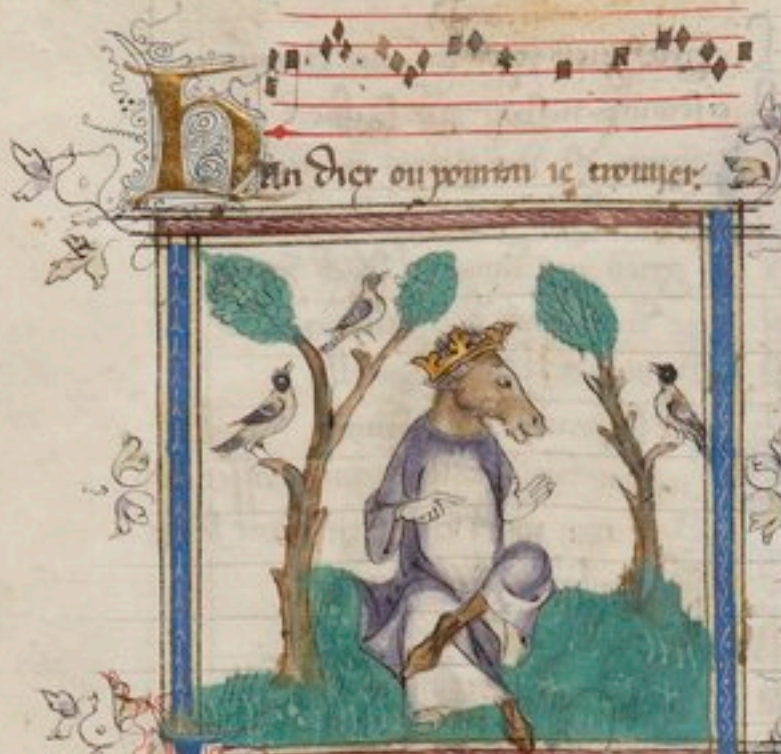 Han diex ou pourrai ie trouuer.